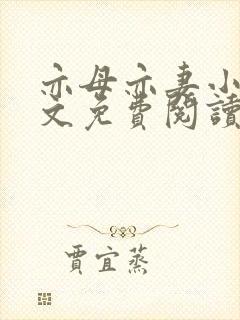 亦母亦妻小
文免費閱讀
賈宜蒸